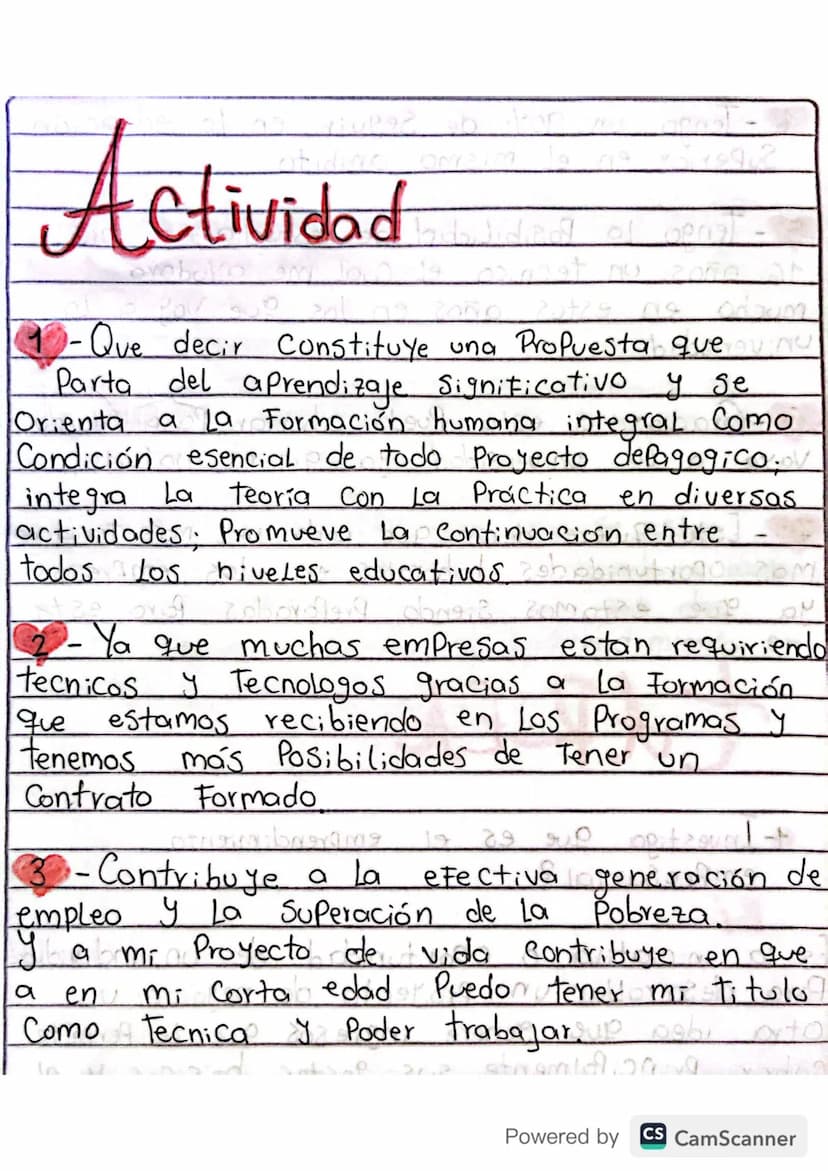 Actividad
1 - Que decir constituye una Propuesta que
Parta del aprendizaje significativo y se
Orienta a la Formación humana integral como
Condición esencial de todo Proyecto depagogico;
integra la teoría con la Práctica en diversas
actividades; Promueve la continuacion entre -
todos los niveles educativos
2 - Ya que muchas empresas estan requiriendo
tecnicos y Tecnologos gracias a la Formación
que estamos recibiendo en los Programas y
tenemos más Posibilidades de Tener un
Contrato Formado
3 - Contribuye a la efectiva generación de
empleo y la Superación de la Pobreza.
Y a mi Proyecto de vida contribuye en que
a en mi corta edad Puedo tener mi titulo
Como Tecnica y Poder trabajar.
Powered by CS CamScanner